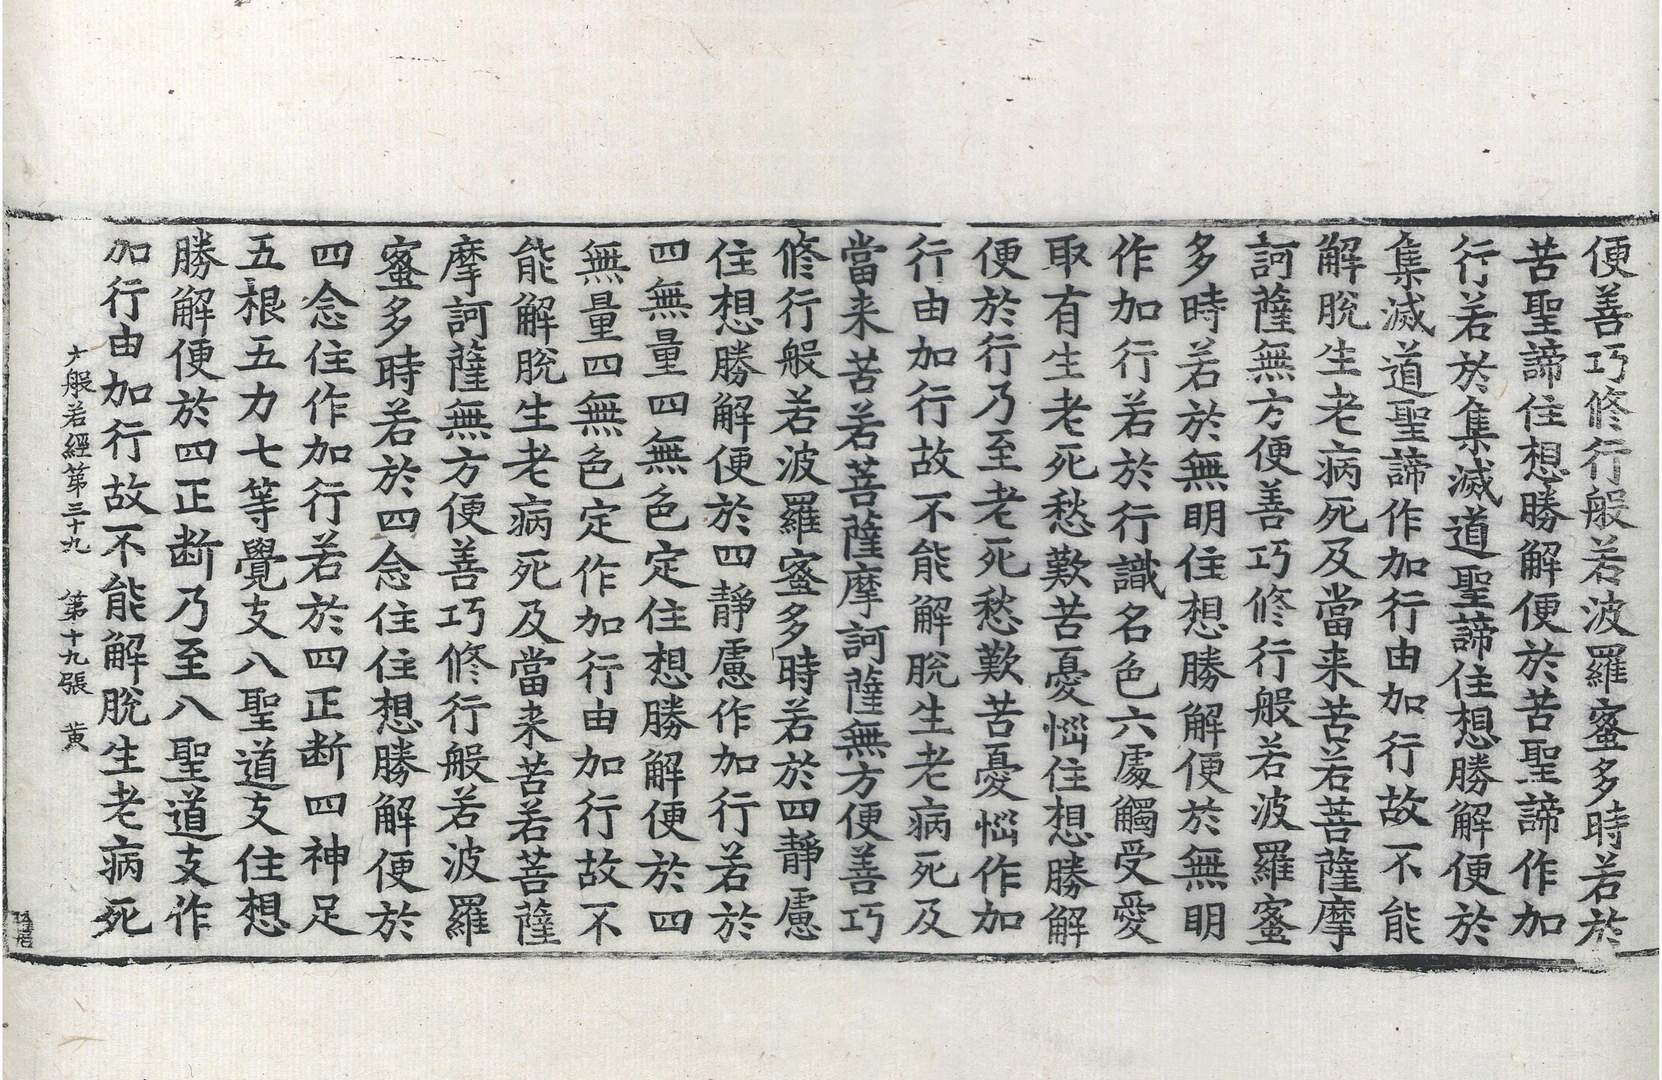 便善巧修行般若波羅蜜多時若於
苦聖諦住想勝解便於苦聖諦作加
行若於集滅道聖諦住想勝解便於
集滅道聖諦作加行由加行故不能
解脫生老病死及當来苦若菩薩摩
訶薩無方便善巧修行般若波羅蜜
多時若於無明住想勝解便於無明
作加行若於行識名色六處觸受愛
取有生老死愁歎苦憂惱住想勝解
便於行乃至老死愁歎苦憂惱作加
行由加行故不能解脫生老病死及
當来苦若菩薩摩訶薩無方便善巧
修行般若波羅蜜多時若於四靜慮
住想勝解便於四靜慮作加行若於
四無量四無色定住想勝解便於四
無量四無色定作加行由加行故不
能解脫生老病死及當来苦若菩薩
摩訶薩無方便善巧修行般若波羅
蜜多時若於四念住住想勝解便於
四念住作加行若於四正断四神足
五根五力七等覺支八聖道支住想
勝解便於四正断乃至八聖道支作
加行由加行故不能解脫生老病死
大般若經第三十九 第十九張 黄